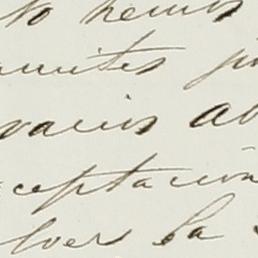 to hemos
amites pr
gacis ab
ceptacion
lver la